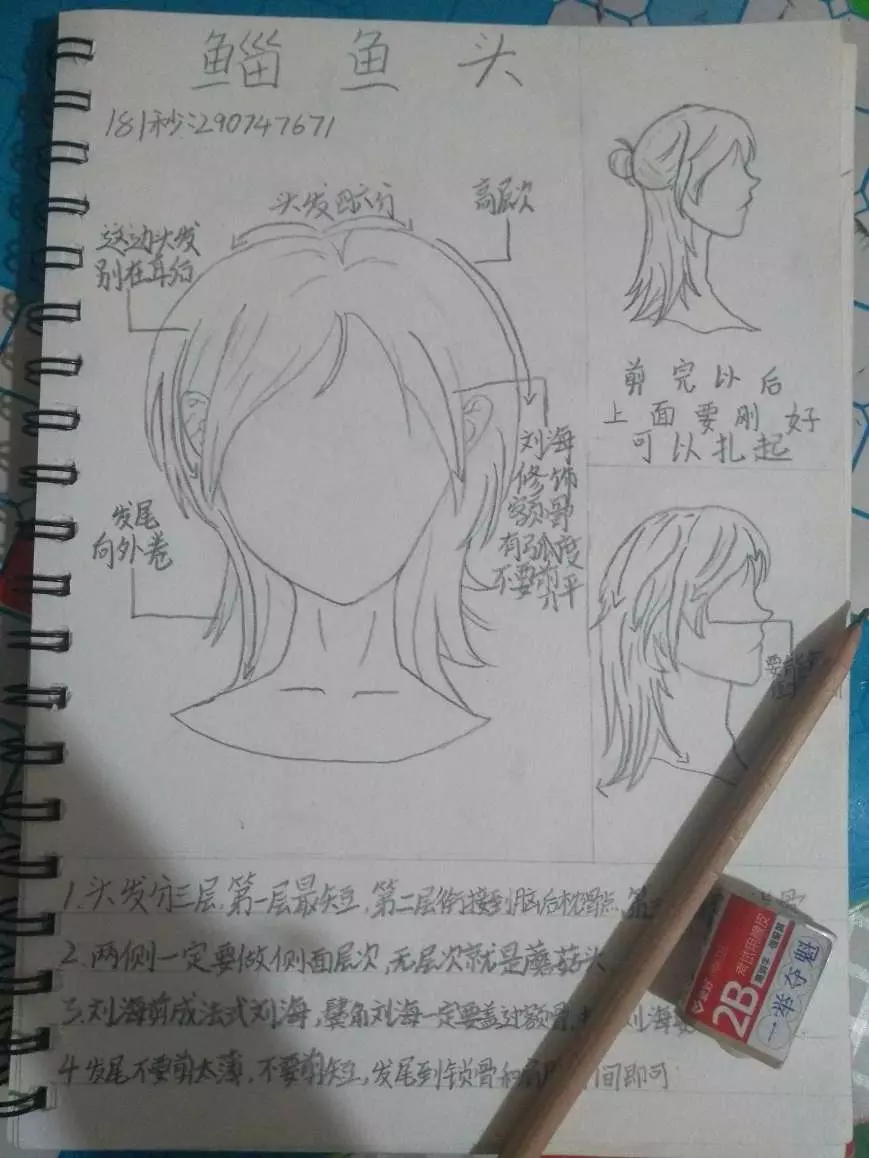 鲻鱼头
181秒:290747671
头发四六分
高层次
这边头发
别在耳后
刘海
修饰
额骨
有弧度
不要剪
齐平
发尾
向外卷
剪完以后
上面要刚好
可以扎起
1.头发分三层,第一层最短,第二层衔接到脑后枕骨点,第
2.两侧一定要做侧面层次,无层次就是蘑菇头
3.刘海剪成法式刘海,鬓角刘海一定要盖过额骨,刘海
4.发尾不要剪太薄,不要剪短,发尾到锁骨和间即可
2B
考试用橡皮
一举夺魁